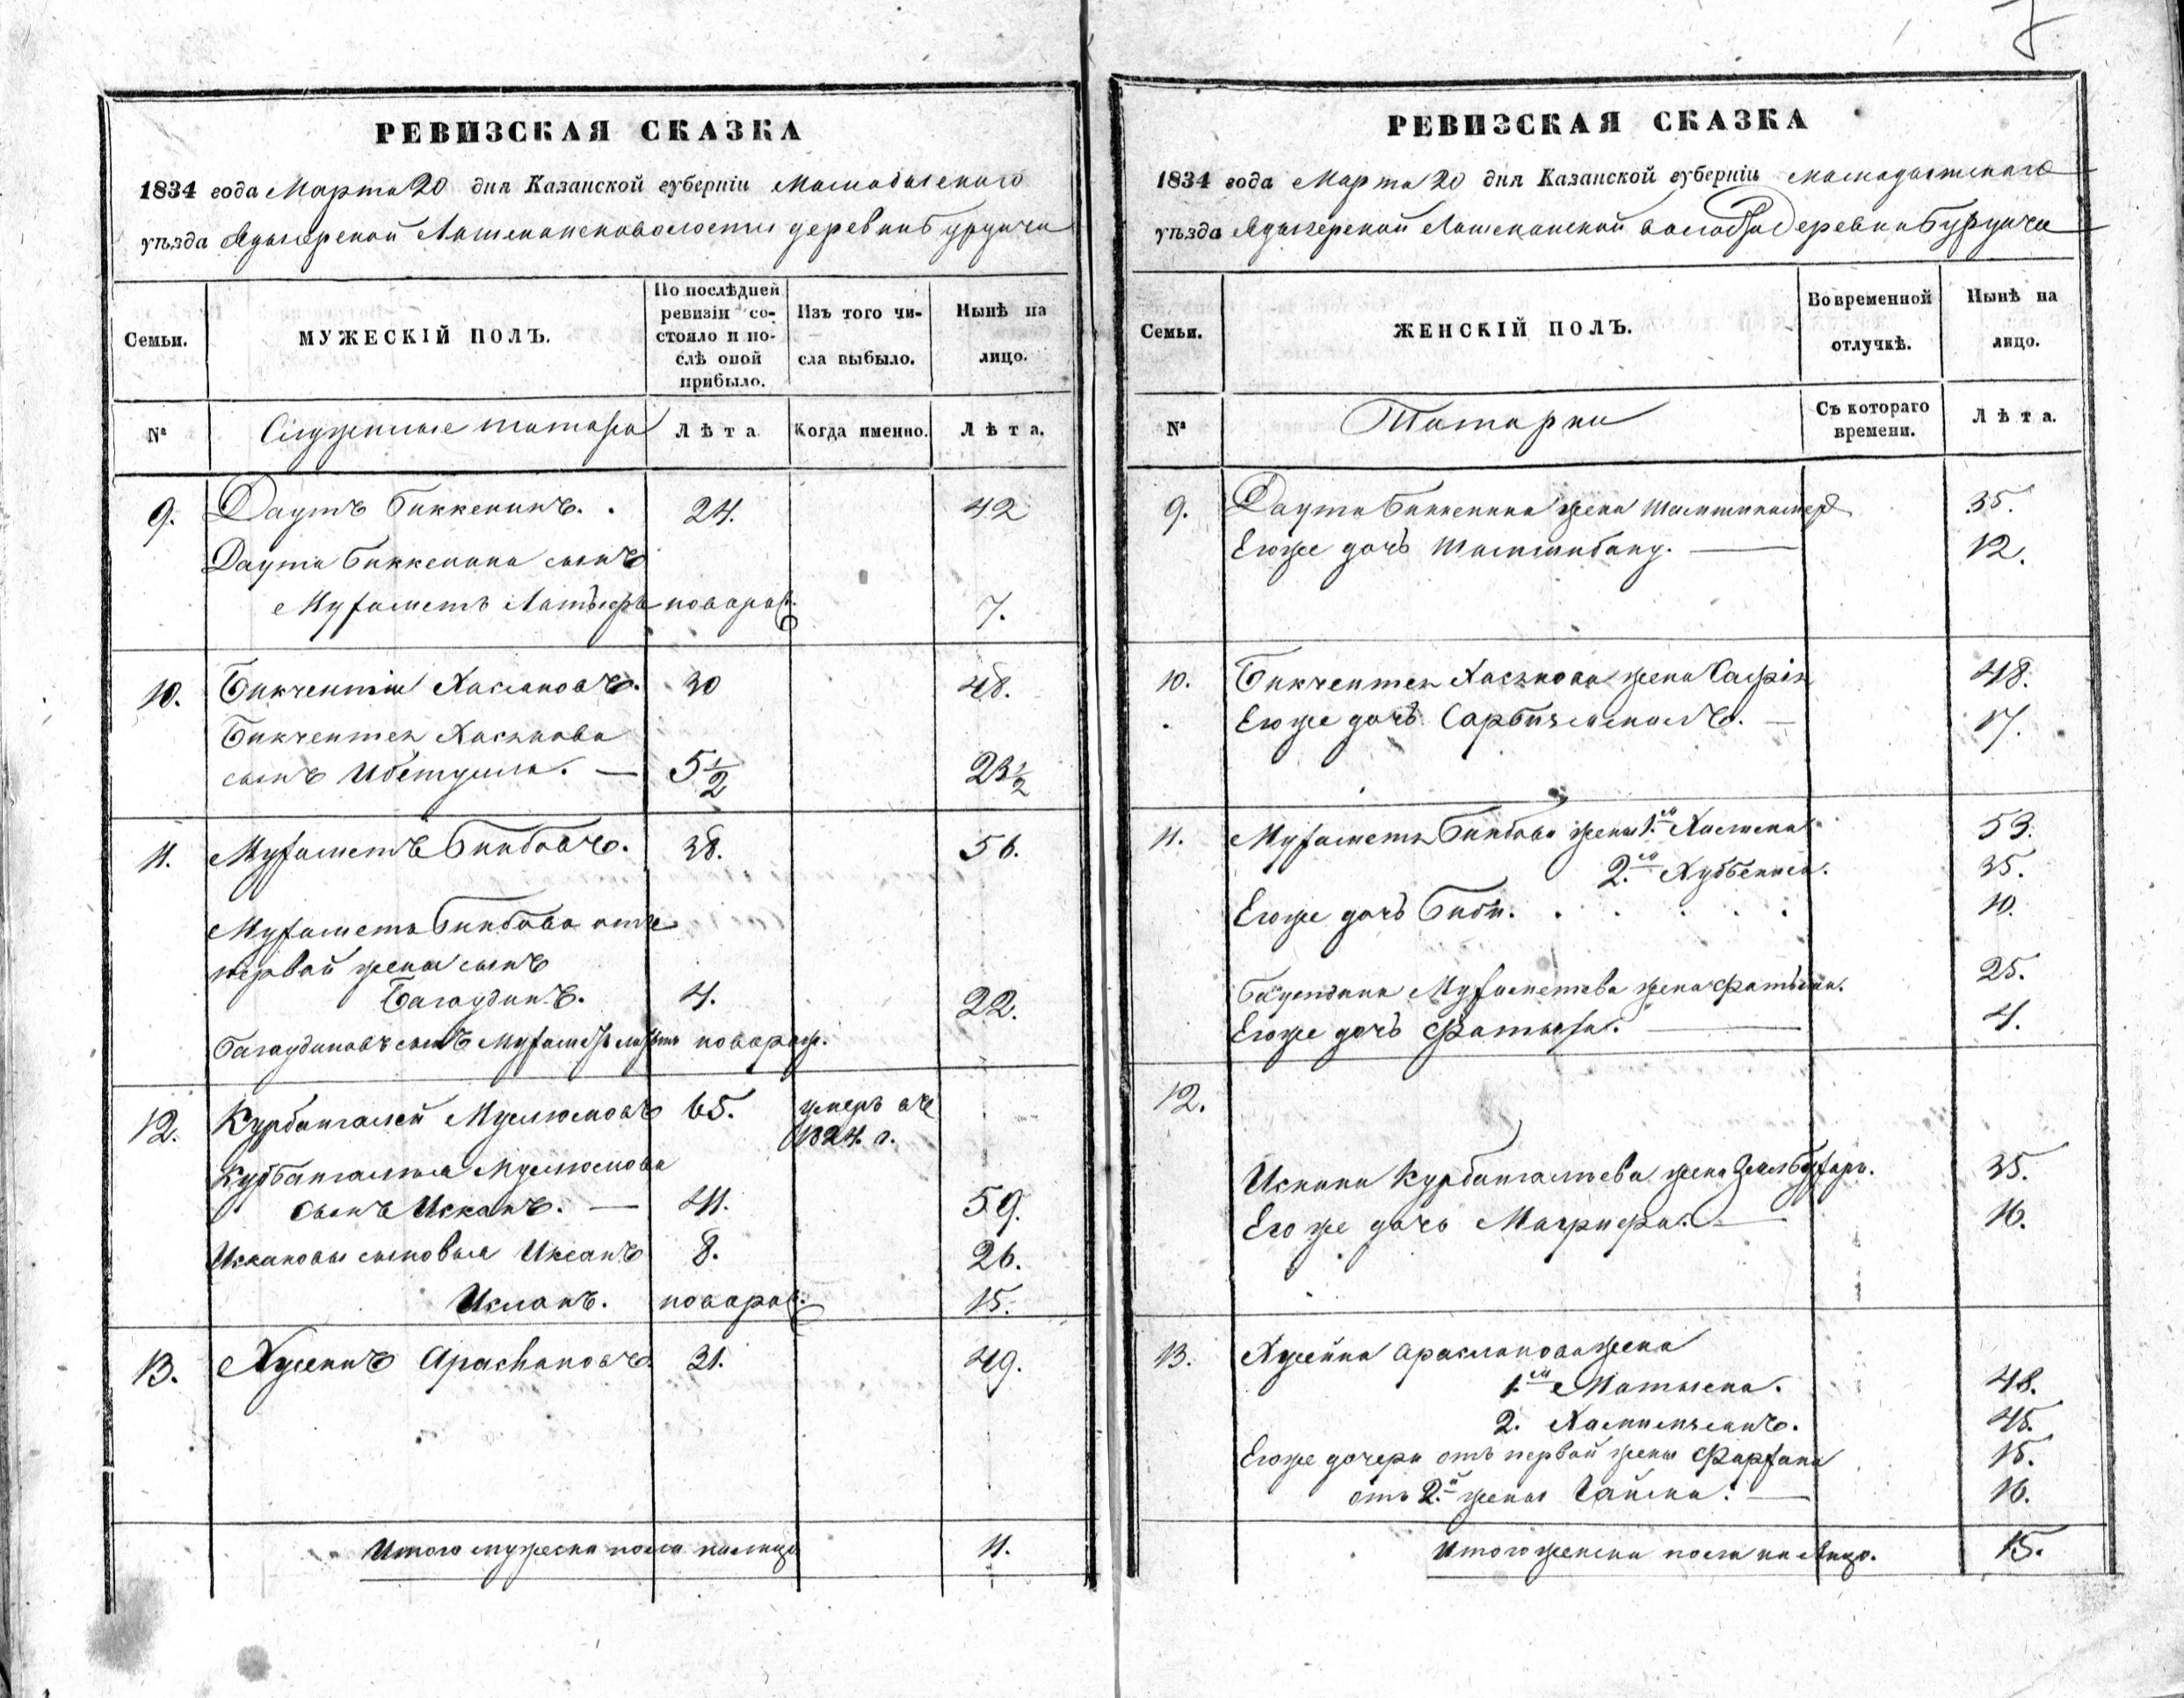 7
РЕВИЗСКАЯ СКАЗКА
1834 года Марта 20 дня Казанской губерніи Мамадышскаго
уѣзда Адыгерской Лашманской волости деревни Бурунчи
Семьи.
МУЖЕСКІЙ ПОЛЪ.
По послѣдней ревизіи со-
стояло и по-
слѣ оной
прибыло.
Изъ того чи-
сла выбыло.
Нынѣ на
лицо.
№
Служилые татара
Лѣта
Когда именно.
Лѣта.
9. Даутъ Биккенинъ. 24. 42
Даута Биккенина сынъ
Мухаметъ новорож. 7.
10. Бикчентей Хасановъ. 30 48.
Бикчентея Хасанова
сынъ Ибетулла. — 5 1/2 23 1/2
11. Мухаметъ Бикбовъ. 38. 56.
Мухаметя Бикбова отъ
первой жены сынъ
Багаудинъ. 4. 22.
Багаудиновъ сынъ новорож.
12. Курбангалей Муслюмовъ 65. умеръ въ
1824. г.
Курбангалея Муслюмова
сынъ Исканъ. — 41. 59.
Искановы сыновья Иксанъ 8. 26.
Исланъ. новорож. 15.
13. Хусеинъ Араслановъ 31. 49.
Итого мужеска пола налицо 11.
РЕВИЗСКАЯ СКАЗКА
1834 года Марта 20 дня Казанской губерніи Мамадышскаго
уѣзда Адыгерской Лашманской волости деревни Бурунчи
Семьи.
ЖЕНСКІЙ ПОЛЪ.
Во временной
отлучкѣ.
Нынѣ на
лицо.
№
Татарки
Съ котораго
времени.
Лѣта.
9. Даута Биккенина жена 35.
Его же дочь Шамсибану. — 12.
10. Бикчентея Хасанова жена Сафія 48.
Его же дочь — 17.
11. Мухаметя Бикбова жены 1.ая 53.
2.ая 35.
Его же дочь Биби. 10.
Багаудина Мухаметева жена Фатыма. 25.
Его же дочь — 4.
12.
Искана Курбангалеева жена 35.
Его же дочь — 16.
13. Хусейна Арасланова жена
1.ая 48.
2. 45.
Его же дочери отъ первой жены Фархана 15.
отъ 2.й жены — 16.
Итого женска пола на лицо. 15.